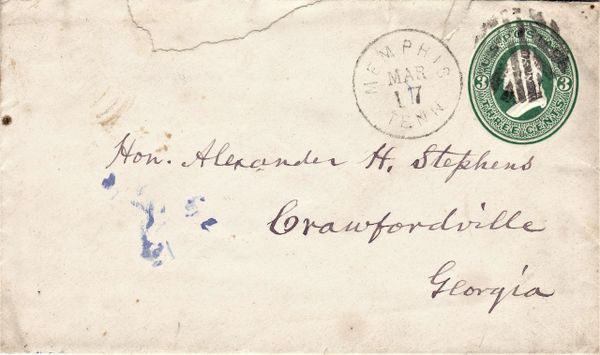 MEMPHIS
MAR
17
TENN
U.S. POSTAGE
3 3
THREE CENTS
Hon. Alexander H. Stephens
Crawfordville
Georgia